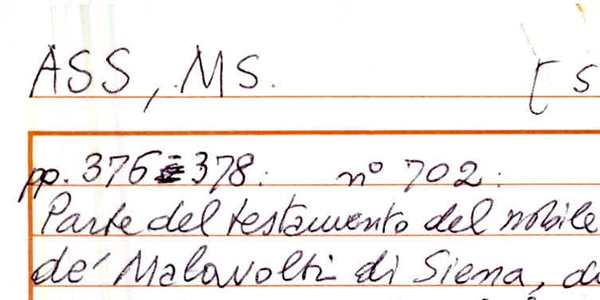 ASS, MS. [S
pp. 376-378: nº 702:
Parte del testamento del nobile
de' Malavolti di Siena, da